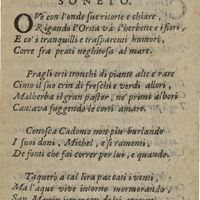 SONETO.
OVe con l'onde sue ritorte e chiare,
Rigando l'Orna và l'herbette e i fiori,
E co' i tranquilli e trasparenti humori,
Corre fra prati neghitosa al mare.
Fra gli erti tronchi di piante alte e rare
Cinto il suo crin di freschi e verdi allori,
Malherba il gran pastor, ne' primi albori
Cantava fuggendo le corti amare.
Conosca Cadomo non più burlando
I suoi doni, Michel, e si ramenti,
De fonti che fai correr per lui, e quando,
Taquero a tal lira paccati i venti
Ma l'aque vive intorno mormorando
San Martin